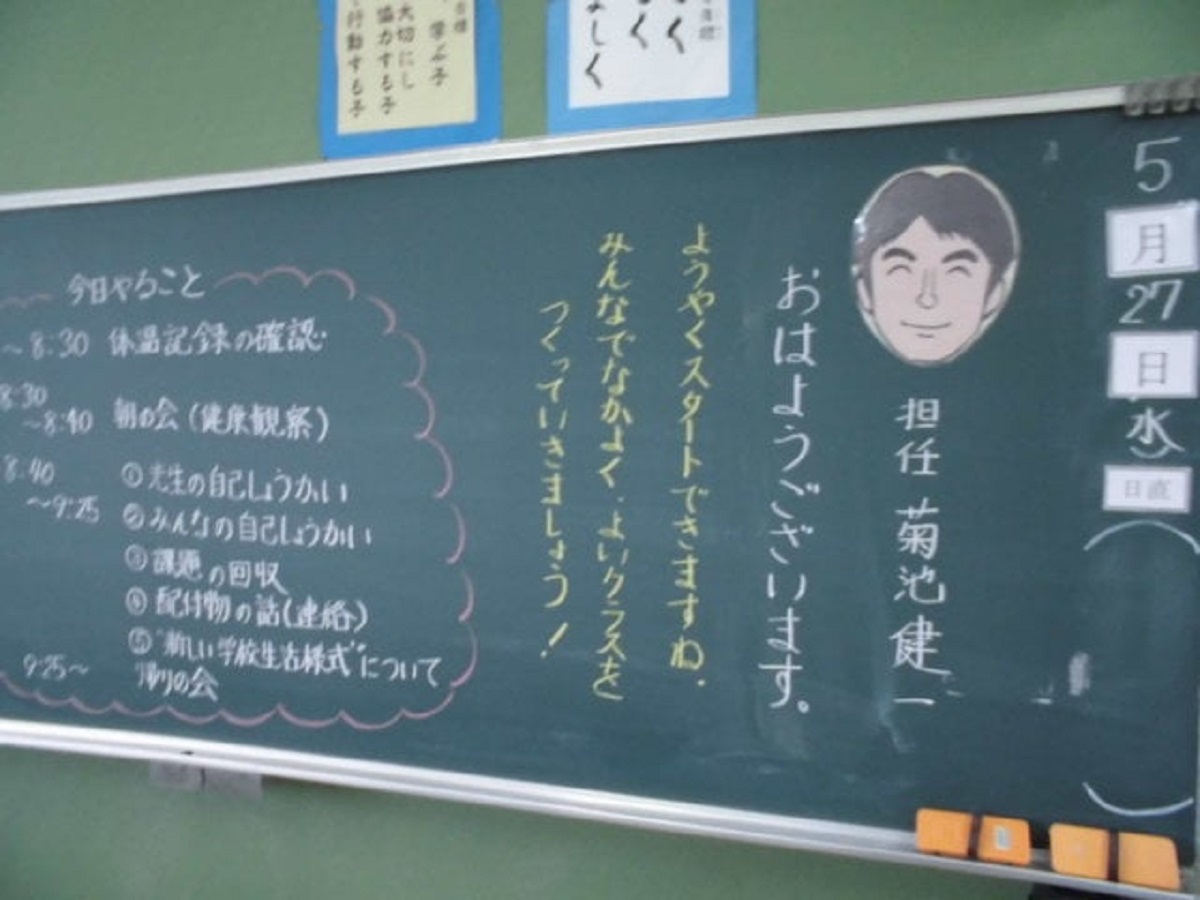 学ぶ子
大切にし
協力する子
行動する子
5
月
27
日
水
日直
担任 菊池健一
おはようございます。
ようやくスタートできますね.
みんなでなかよく、よいクラスを
つくっていきましょう!
今日やること
~8:30 体温記録の確認
8:30
~8:40 朝の会(健康観察)
8:40
~9:25
①先生の自己しょうかい
②みんなの自己しょうかい
③課題の回収
④配付物の話(連絡)
⑤"新しい学校生活様式"について
9:25~ 帰りの会